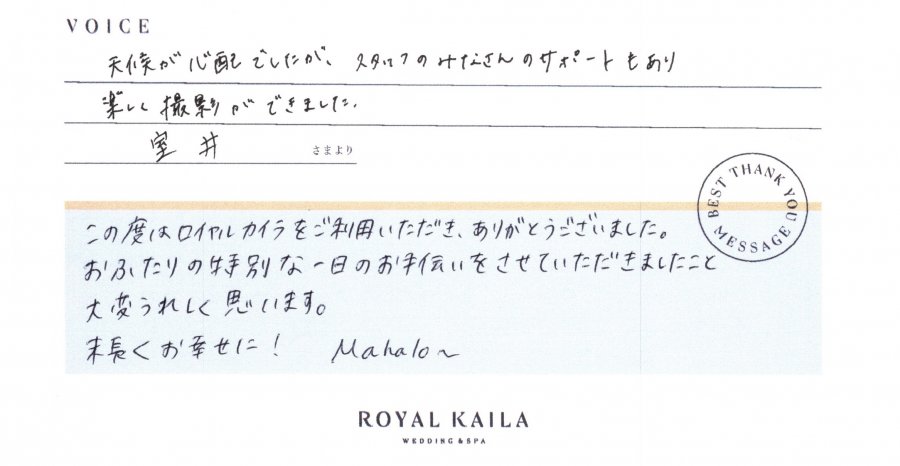 VOICE
天候が心配でしたが、スタッフのみなさんのサポートもあり
楽しく撮影ができました。
室井 さまより
BEST THANK YOU MESSAGE
この度はロイヤルカイラをご利用いただき、ありがとうございました。
おふたりの特別な一日のお手伝いをさせていただきましたこと
大変うれしく思います。
末長くお幸せに! Mahalo~
ROYAL KAILA
WEDDING & SPA